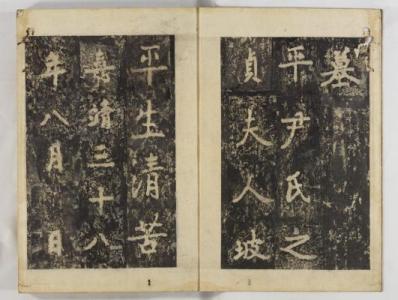 墓
平尹氏之
貞夫人坡
平生清苦
嘉靖三十八
年八月 日